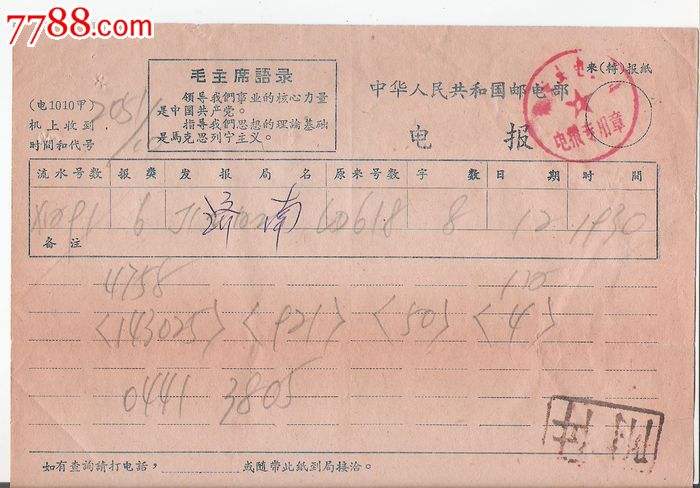 7788.com
来(特)报紙
毛主席語录
领导我們事业的核心力量
是中国共产党。
指导我們思想的理論基础
是馬克思列宁主义。
中华人民共和国邮电部
电报
(电1010甲)
机上收到
时間和代号
电报专用章
流水号数 报类 发报局名 原来号数 字数 日期 时間
6 济南 618 8 12 1930
备注
4758
<143025> <921> <50> <4>
0441 3805
如有查詢請打电話， 或随帶此紙到局接洽。